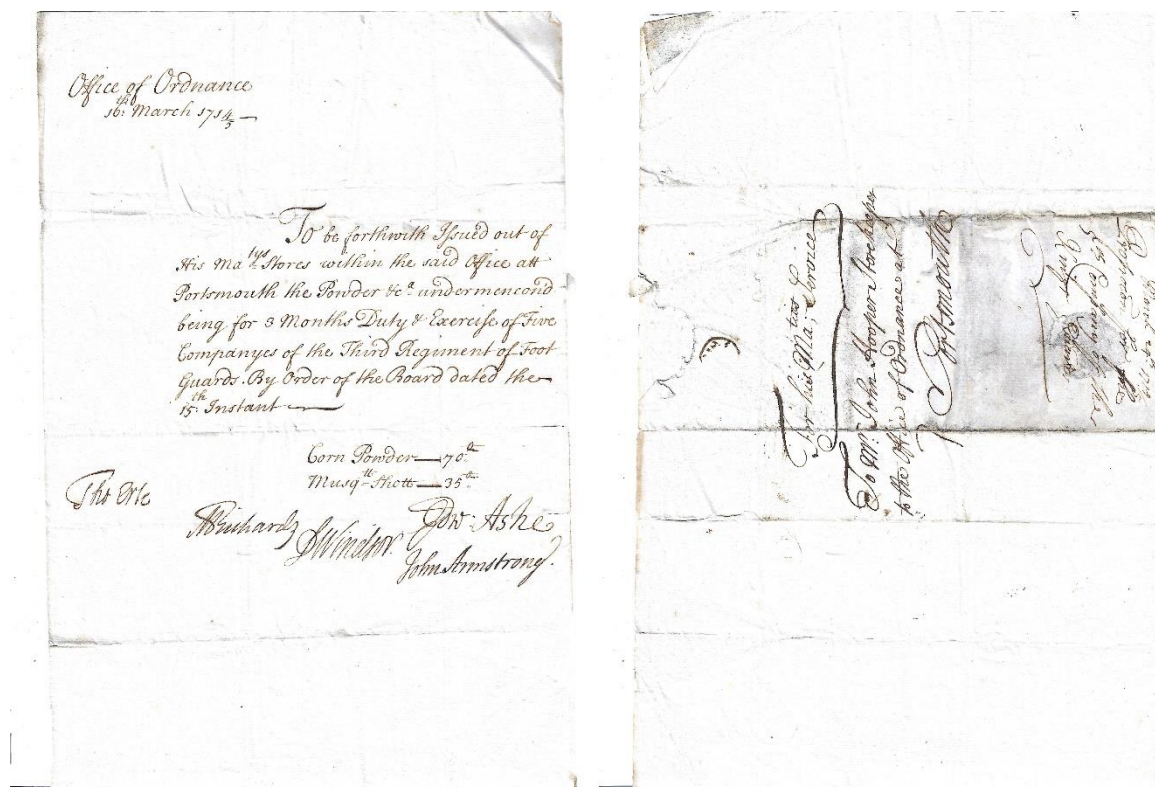 Office of Ordnance
16th. March 1714/5
To be forthwith Issued out of
His Matys Stores within the said Office att
Portsmouth the Powder &ca. undermencond
being for 3 Months Duty & Exercise of Five
Companyes of the Third Regiment of Foot
Guards. By Order of the Board dated the
15th. Instant
Corn Powder — 70 lb
Musqtt. Shott — 35 lb
Tho Erle
MRichards
DWindsor.
Edw: Ashe
John Armstrong.
For his Maties, Service
To Mr. John Hooper Storekeeper
to the Office of Ordnance at
Portsmouth